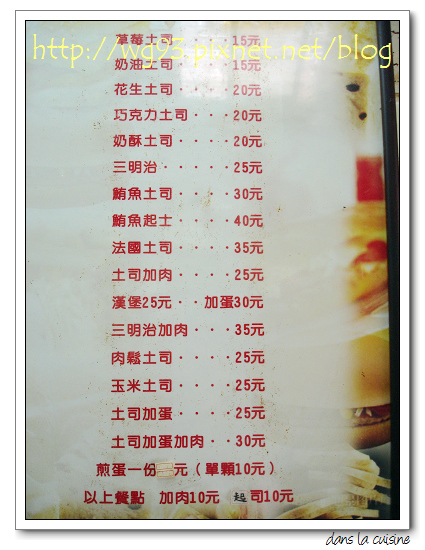 草莓土司····15元
http://wg93.pixnet.net/blog
奶油土司····15元
花生土司····20元
巧克力土司···20元
奶酥土司····20元
三明治·····25元
鮪魚土司····30元
鮪魚起士····40元
法國土司····35元
土司加肉····25元
漢堡25元··加蛋30元
三明治加肉···35元
肉鬆土司····25元
玉米土司····25元
土司加蛋····25元
土司加蛋加肉··30元
煎蛋一份 元（單顆10元）
以上餐點 加肉10元 起司10元
dans la cuisine